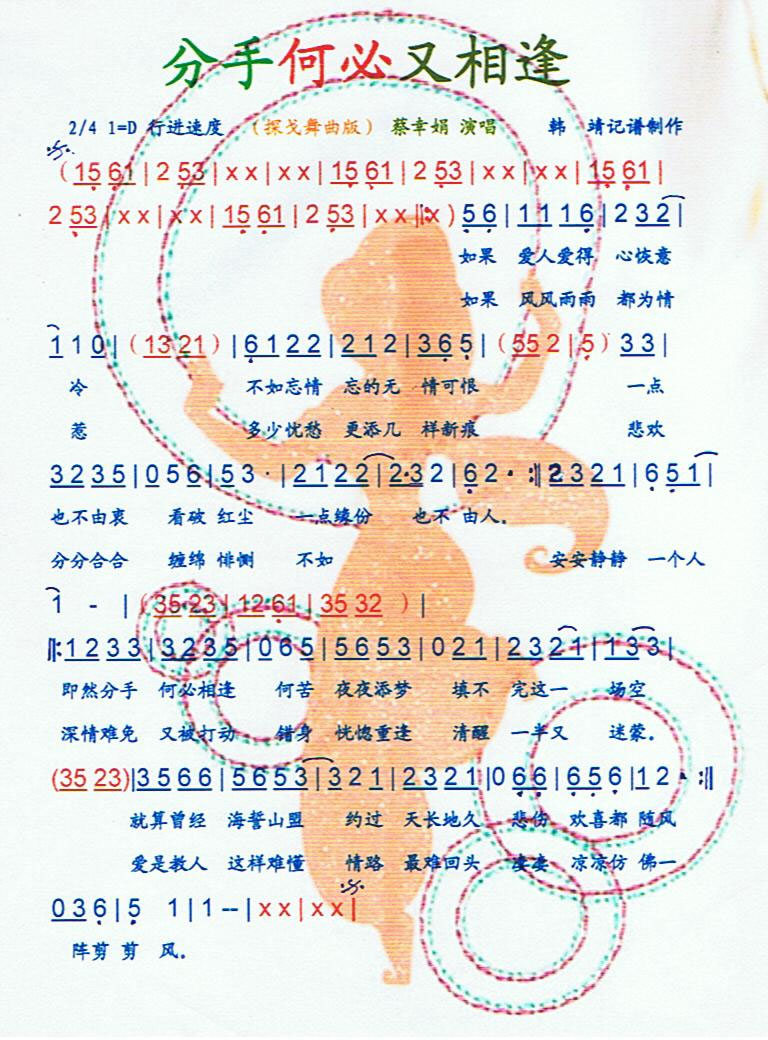 分手何必又相逢
2/4 1=D 行进速度 （探戈舞曲版） 蔡幸娟 演唱 韩 靖记谱制作
（15 61 | 2 53 | x x | x x | 15 61 | 2 53 | x x | x x | 15 61 |
2 53 | x x | x x | 15 61 | 2 53 | x x ‖: x ) 5 6 | 1 1 1 6 | 2 3 2 |
如果 爱人爱得 心恢意
如果 风风雨雨 都为情
1 1 0 | （13 21）| 6 1 2 2 | 2 1 2 | 3 6 5 | （55 2 | 5）3 3 |
冷 不如忘情 忘的无 情可恨 一点
惹 多少忧愁 更添几 样新痕 悲欢
3 2 3 5 | 0 5 6 | 5 3 · | 2 1 2 2 | 2·3 2 | 6 2 · :‖ 2 3 2 1 | 6 5 1 |
也不由衷 看破 红尘 一点缘份 也不 由人。
分分合合 缠绵 悱恻 不如 安安静静 一个人
1 - |（35 23 | 12 61 | 35 32 ）|
‖: 1 2 3 3 | 3 2 3 5 | 0 6 5 | 5 6 5 3 | 0 2 1 | 2 3 2 1 | 1 3 3 |
即然分手 何必相逢 何苦 夜夜添梦 填不 完这一 场空
深情难免 又被打动 错身 恍惚重逢 清醒 一半又 迷蒙。
(35 23) | 3 5 6 6 | 5 6 5 3 | 3 2 1 | 2 3 2 1 | 0 6 6 | 6 5 6 | 1 2 · :‖
就算曾经 海誓山盟 约过 天长地久 悲伤 欢喜都 随风
爱是教人 这样难懂 情路 最难回头 凄凄 凉凉仿 佛一
0 3 6 | 5 1 | 1 -- | x x | x x |
阵剪 剪 风。